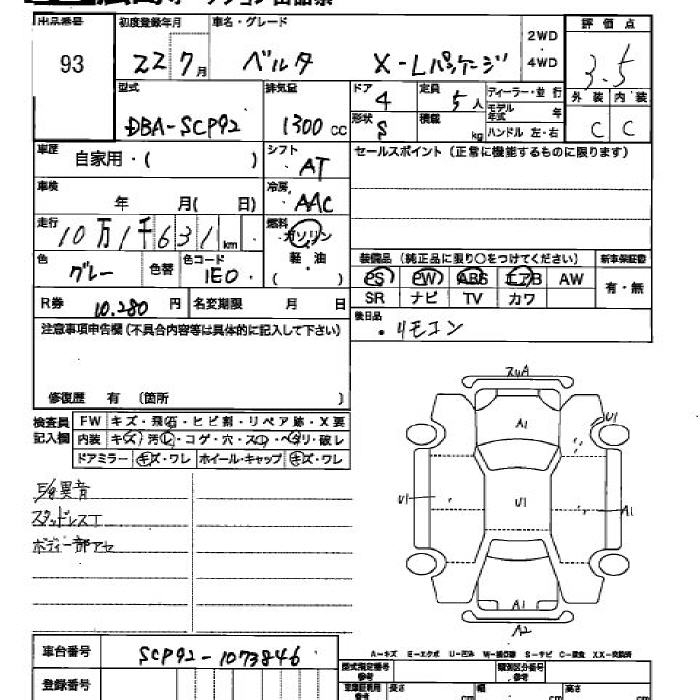 出品番号 初度登録年月 車名・グレード 評価点
93 22 7月 ベルタ X-Lパッケージ 2WD 4WD 3.5
型式 排気量 ドア 定員 ディーラー・並行 外装 内装
DBA-SCP92 1300 cc 4 5人 モデル年式 年 C C
形状 S 積載 kg ハンドル 左・右
車歴 自家用・( ) シフト AT セールスポイント(正常に機能するものに限ります)
車検 年 月( 日) 冷房 AAC
走行 10万1千631km 燃料 ガソリン
軽・油
( )
色 グレー 色替 色コード 1E0 装備品(純正品に限り○をつけてください) 新車保証書
PS PW ABS エアB AW 有・無
SR ナビ TV カワ
R券 10,280円 名変期限 月 日 後日品
・リモコン
注意事項申告欄(不具合内容等は具体的に記入して下さい)
修復歴 有 (箇所 )
検査員記入欄 FW キズ・飛石・ヒビ割・リペア跡・X要
内装 キズ・汚レ・コゲ・穴・スレ・ヘタリ・破レ
ドアミラー キズ・ワレ ホイール・キャップ キズ・ワレ
異音
スタッドレスT
ボディ一部アセ
A1
U1
U1
U1
A1
A1
A2
A-キズ E-エクボ U-凹み W-補修跡 S-サビ C-腐食 XX-交換済
車台番号 SCP92-1073846
型式指定番号 類別区分番号
登録番号 長さ cm 幅 cm 高さ cm